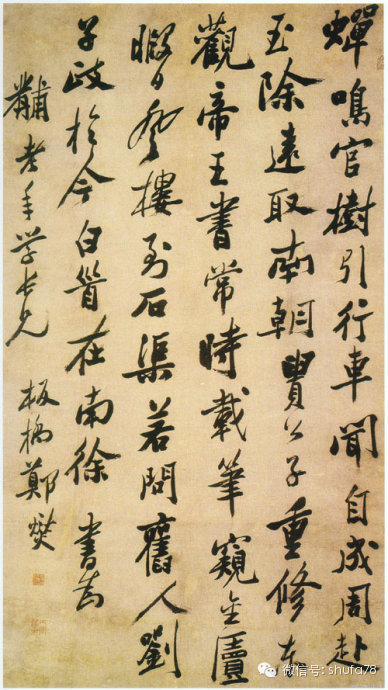 蟬鳴官樹引行車聞自成周赴
玉除遠取南朝貴公子重修東
觀帝王書常時載筆窺金匱
暇日登樓到石渠若問舊人劉
子政於今白首在南徐 書為
黼老年学長兄 板橋鄭燮
微信号: shufa78